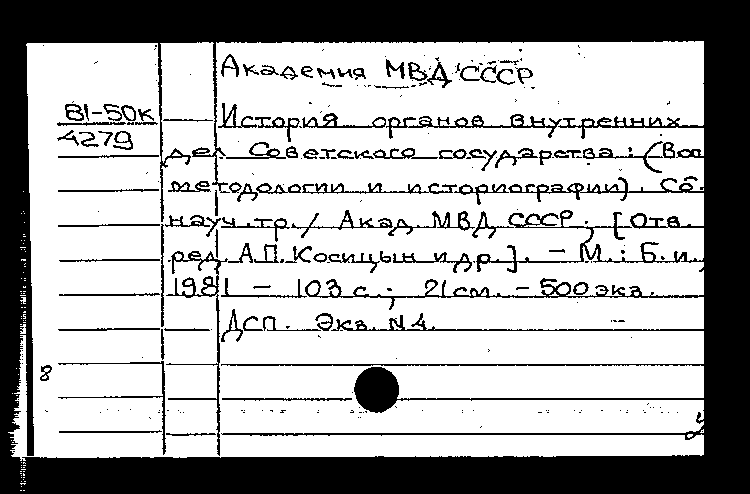 Академия МВД СССР
81-50к
4279
История органов внутренних
дел Советского государства: (Воп
методологии и историографии). Сб.
науч. тр. / Акад. МВД СССР; [Отв.
ред. А.П. Косицын и др.]. - М.: Б.и.,
1981 - 103 с.; 21 см. - 500 экз.
ДСП. Экз. N 4.
8